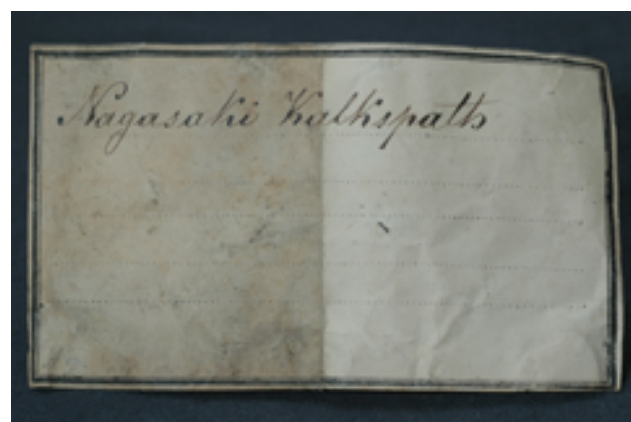 Nagasaki Kalkspath